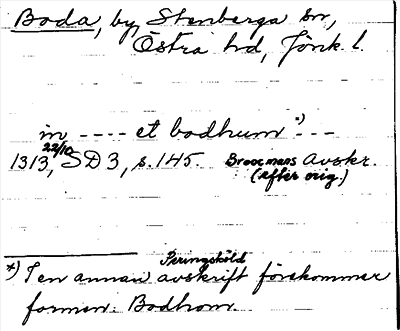 Boda, by, Stenberga sn,
Östra hd, Jönk. l.
in ---- et bodhum *) ---
1313, 22/10 SD 3, s. 145. Broocmans Avskr.
(efter orig.)
*) I en annan Peringsköld avskrift förekommer
formen: Bodhom.